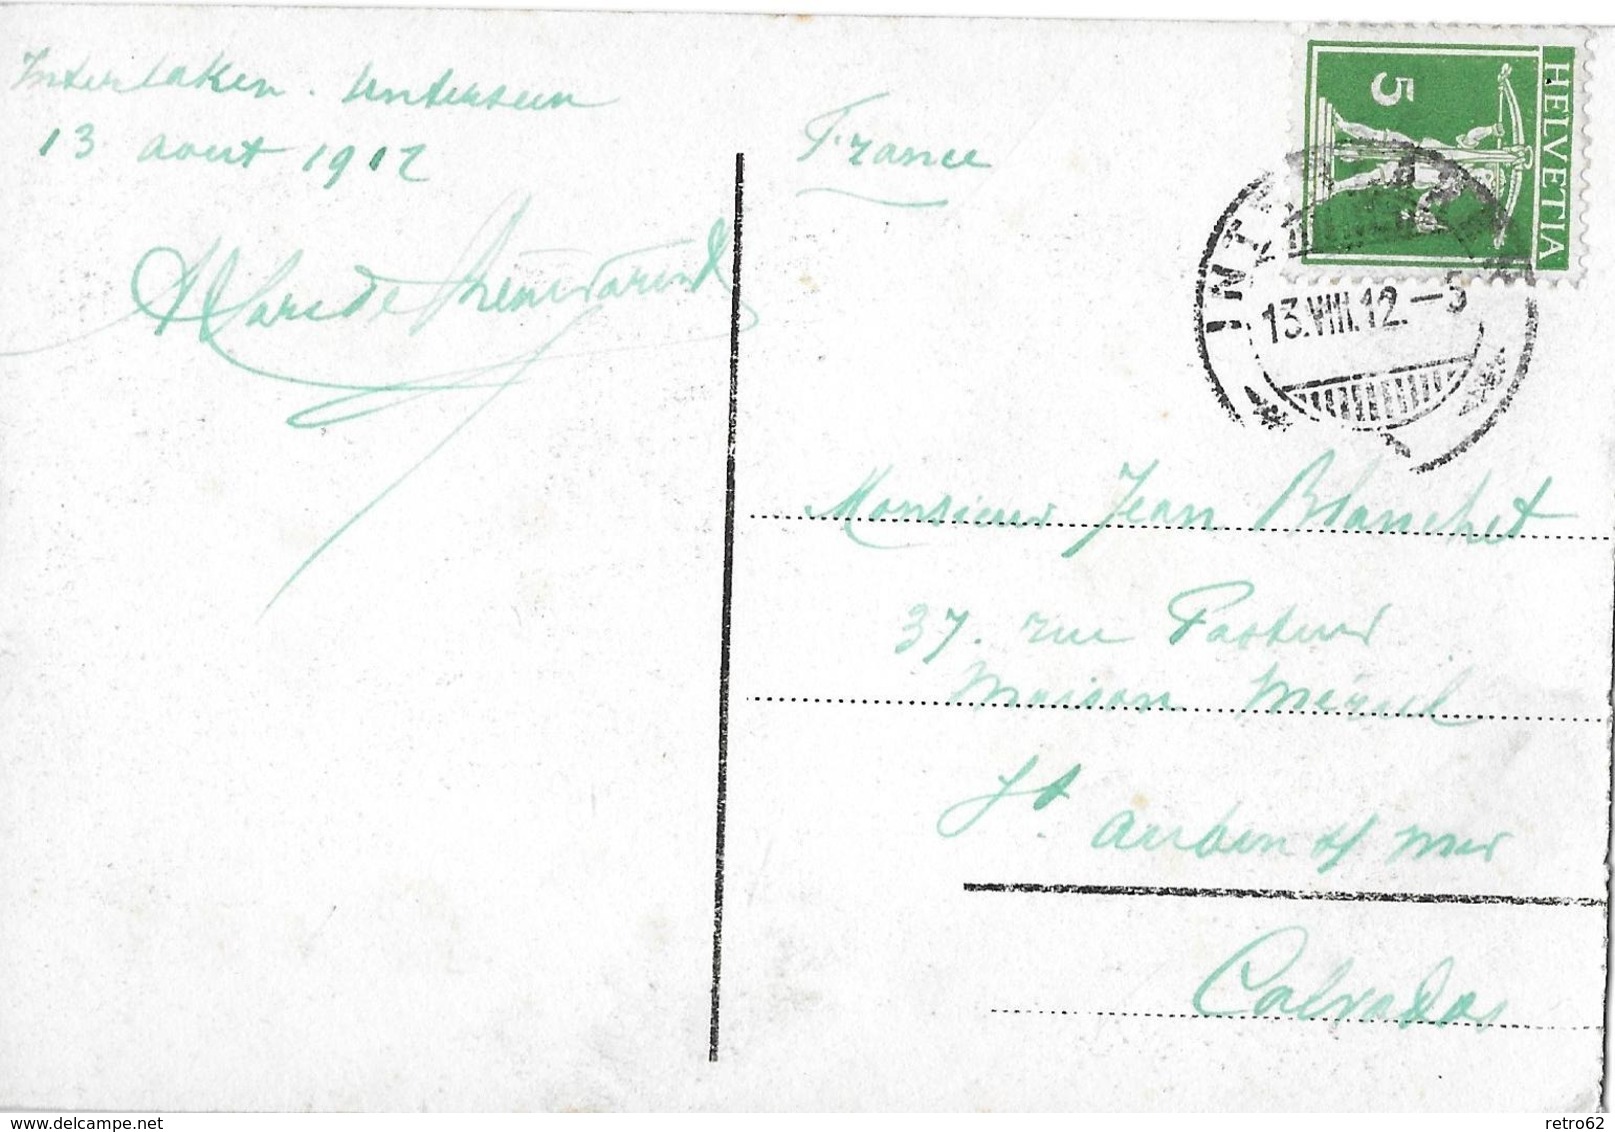 Interlaken. Unterseen
13 aout 1912
France
HELVETIA
5
INT
13.VIII.12.-5
Monsieur Jean Blanchet
37. rue Pasteur
Maison
St Auben s/ mer
Calvados
www.delcampe.net
retro62